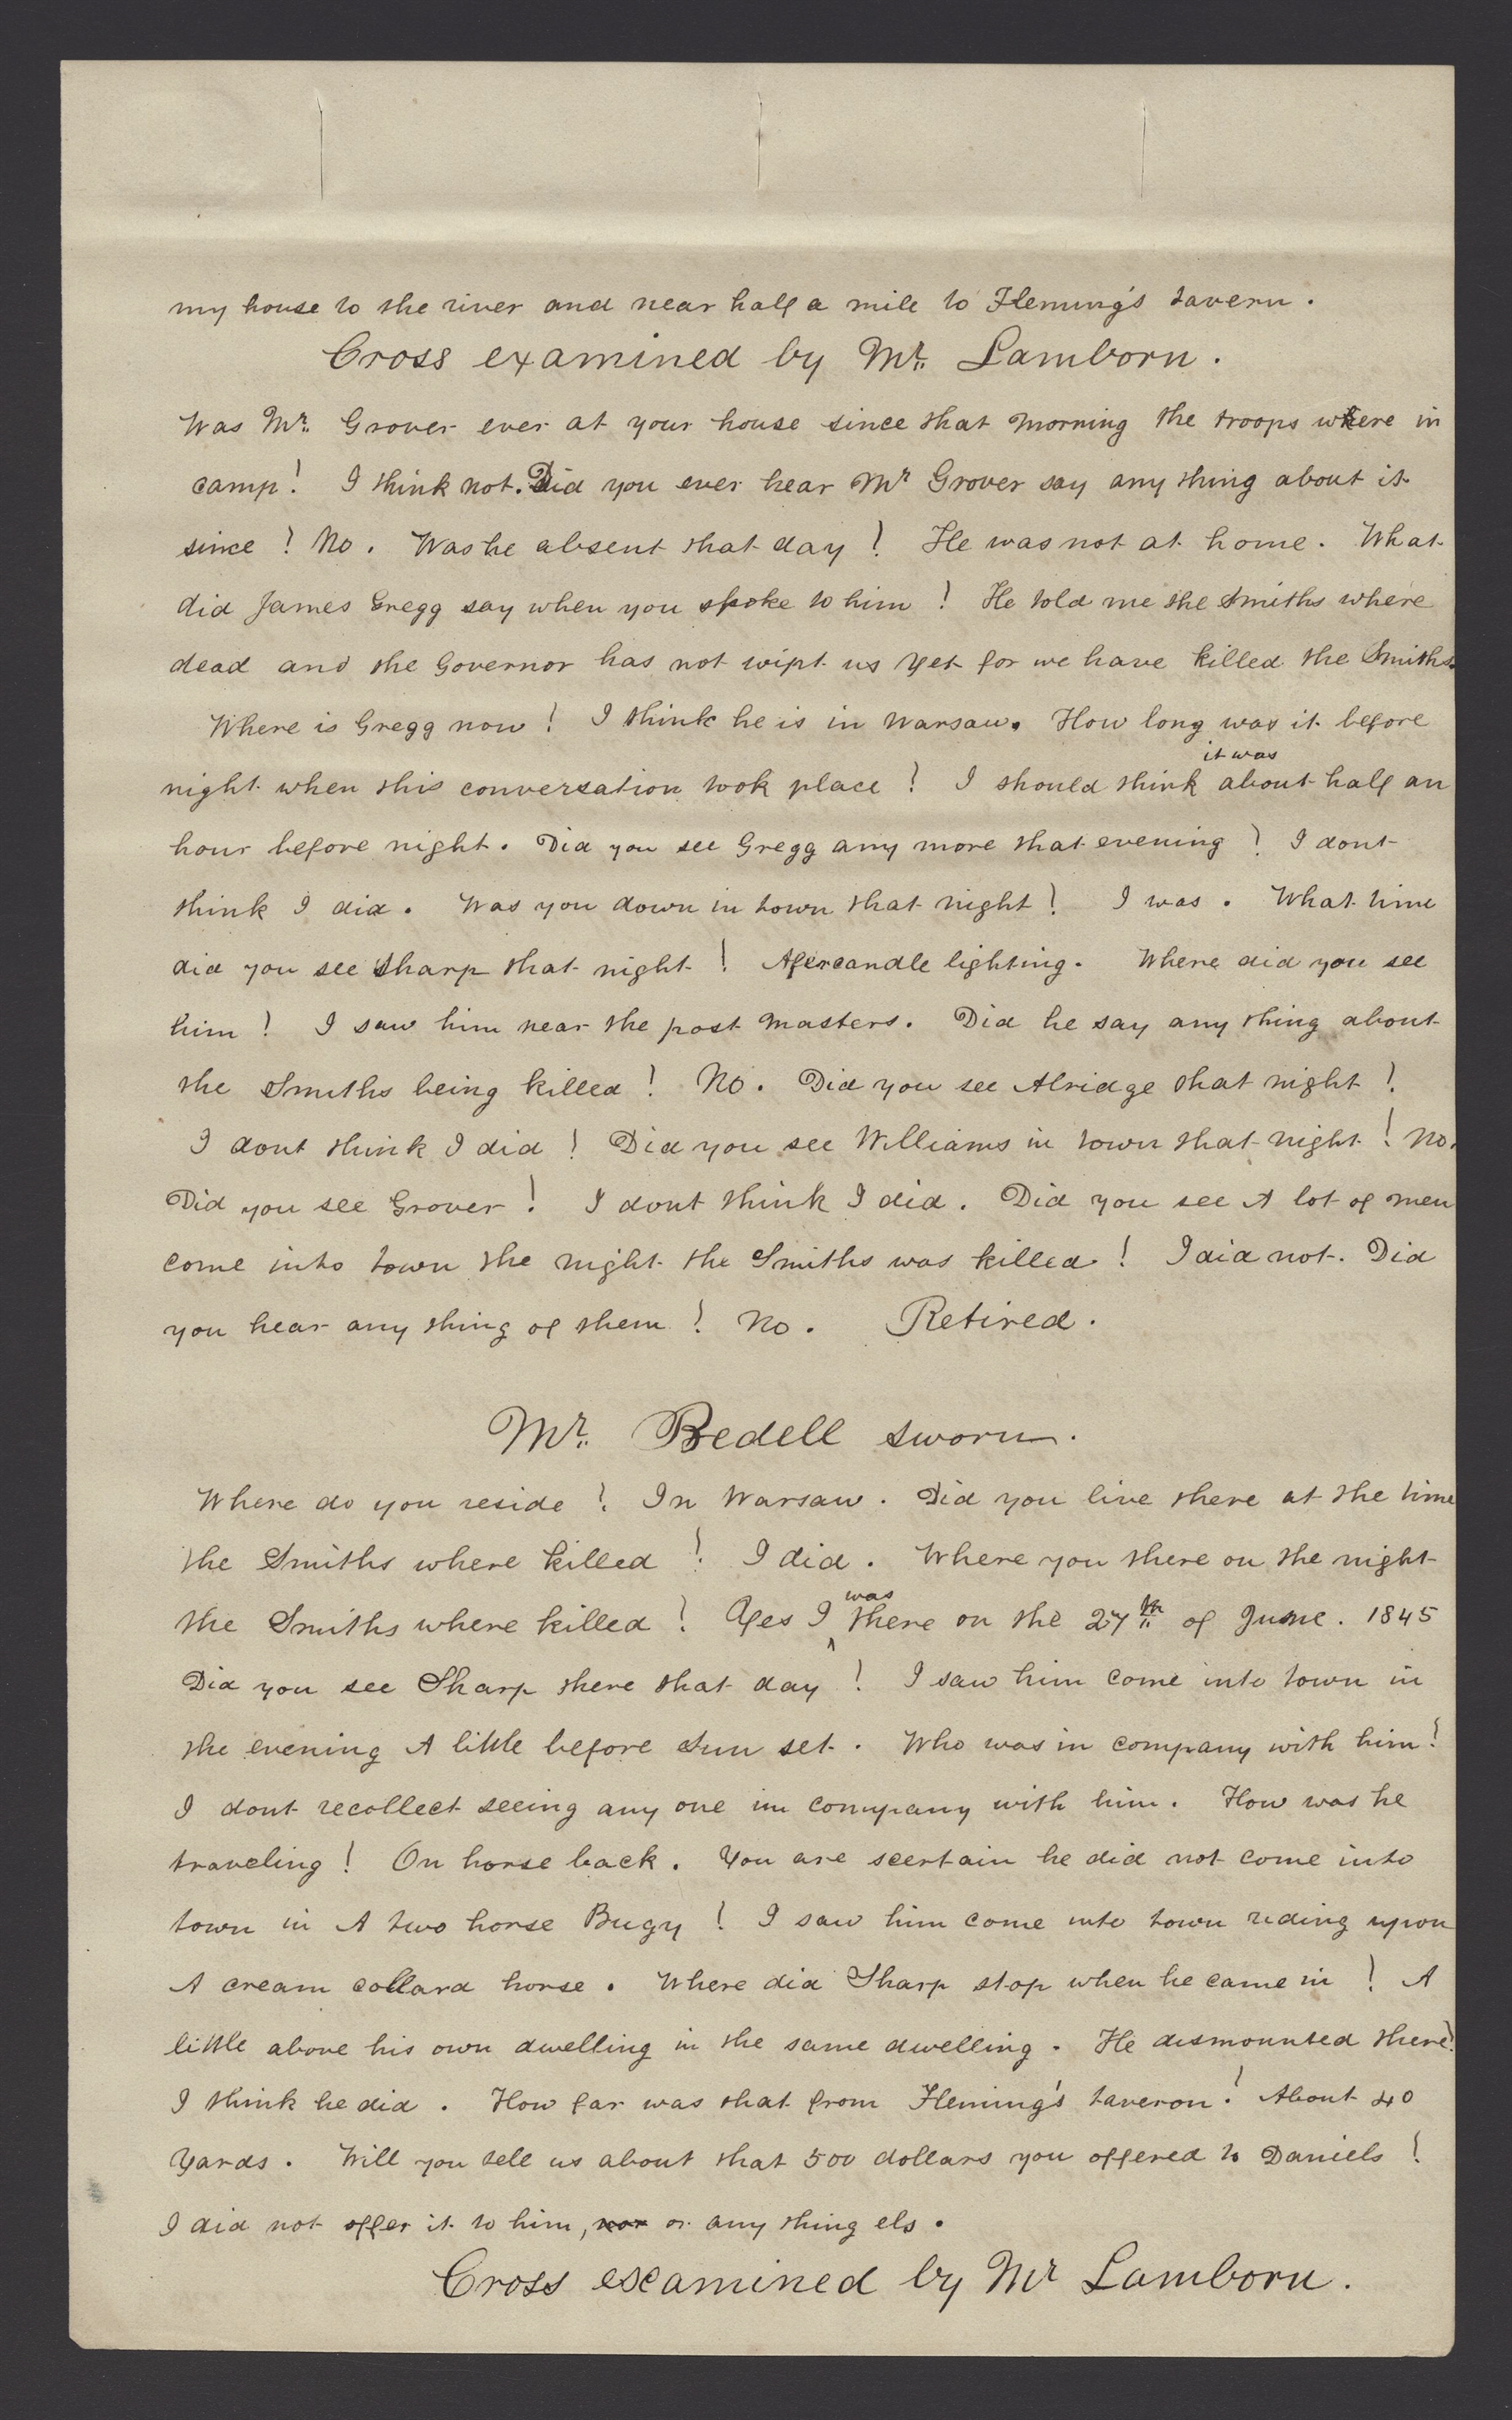 my house to the river and near half a mile to Fleming's tavern.
Cross examined by Mr. Lamborn.
Was Mr. Grover ever at your house since that morning the troops where in
camp! I think not. Did you ever hear Mr Grover say any thing about it
since! No. Was he absent that day! He was not at home. What
did James Gregg say when you spoke to him! He told me the Smiths where
dead and the Governor has not wipt us yet for we have killed the Smiths.
Where is Gregg now! I think he is in Warsaw. How long was it before
it was
night when this conversation took place! I should think about half an
hour before night. Did you see Gregg any more that evening! I dont
think I did. Was you down in town that night! I was. What time
did you see Sharp that night! Afercandle lighting. Where did you see
him! I saw him near the post masters. Did he say any thing about
the Smiths being killed! No. Did you see Alridge that night!
I dont think I did! Did you see Williams in town that night! No.
Did you see Grover! I dont think I did. Did you see A lot of men
come into town the night the Smiths was killed! I did not. Did
you hear any thing of them! No. Retired.
Mr. Bedell sworn.
Where do you reside! In Warsaw. Did you live there at the time
the Smiths where killed! I did. Where you there on the night
was
the Smiths where killed! Yes I there on the 27th of June. 1845
Did you see Sharp there that day! I saw him come into town in
the evening A little before Sun set. Who was in company with him!
I dont recollect seeing any one im company with him. How was he
traveling! On horse back. You are scertain he did not come into
town in A two horse Bugy! I saw him come into town riding upon
A cream collard horse. Where did Sharp stop when he came in! A
little above his own dwelling in the same dwelling. He dismounted there!
I think he did. How far was that from Fleming's taveron! About 40
Yards. Will you tell us about that 500 dollars you offered to Daniels!
I did not offer it to him, nor or any thing els.
Cross examined by Mr Lamborn.